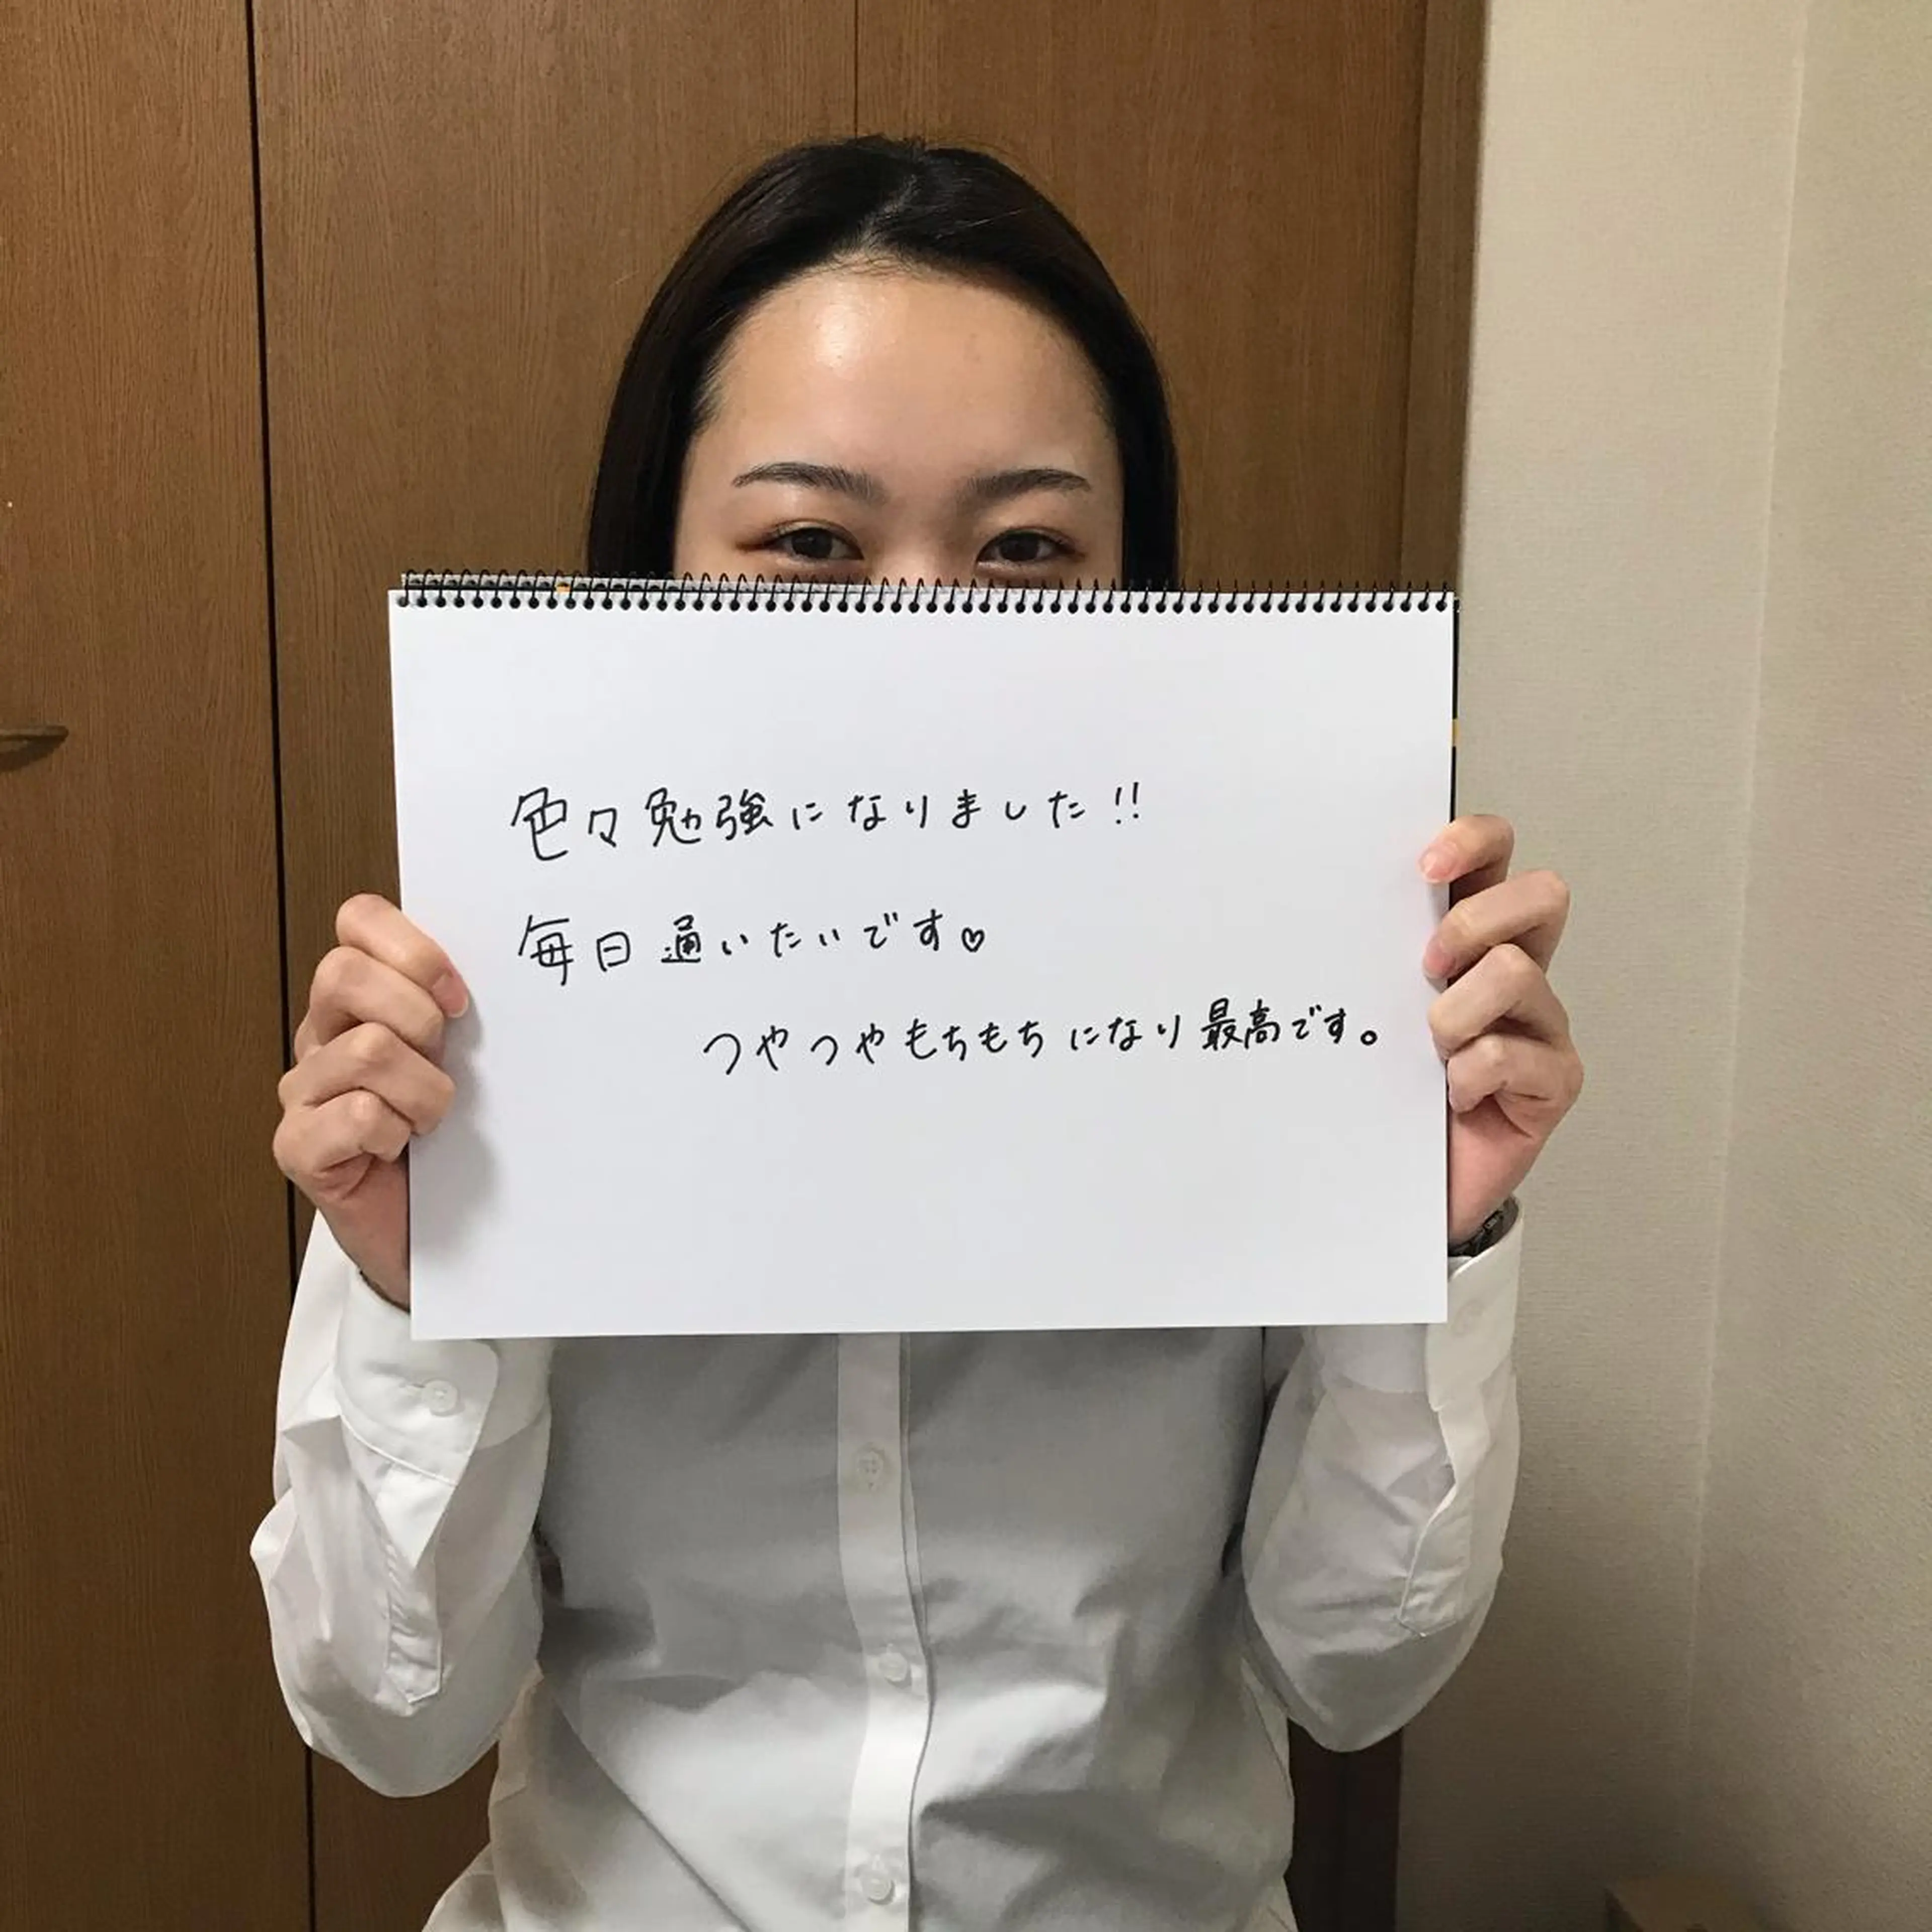 色々勉強になりました!!
毎日通いたいです♡
つやつやもちもちになり最高です。